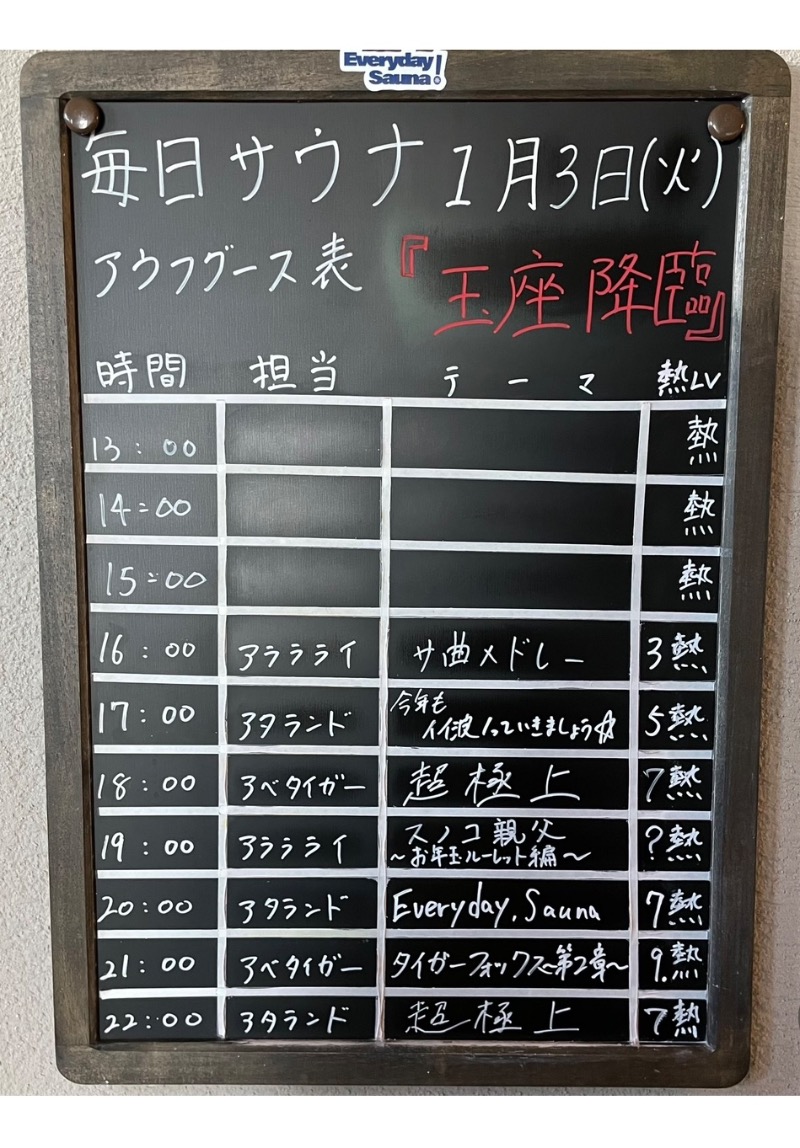 Everyday
Sauna!
毎日サウナ 1月3日(火)
アウフグース表 『玉座降臨』
時間 担当 テーマ 熱LV
13:00 熱
14:00 熱
15:00 熱
16:00 アラララライ サ曲メドレー 3熱
17:00 アタランド 今年も
イイ波ノっていきましょう☆ 5熱
18:00 アベタイガー 超極上 7熱
19:00 アララライ スノコ親父
～お年玉ルーレット編～ ?熱
20:00 アタランド Everyday.Sauna 7熱
21:00 アベタイガー タイガーフォックス～第2章～ 9.熱
22:00 アタランド 超極上 7熱